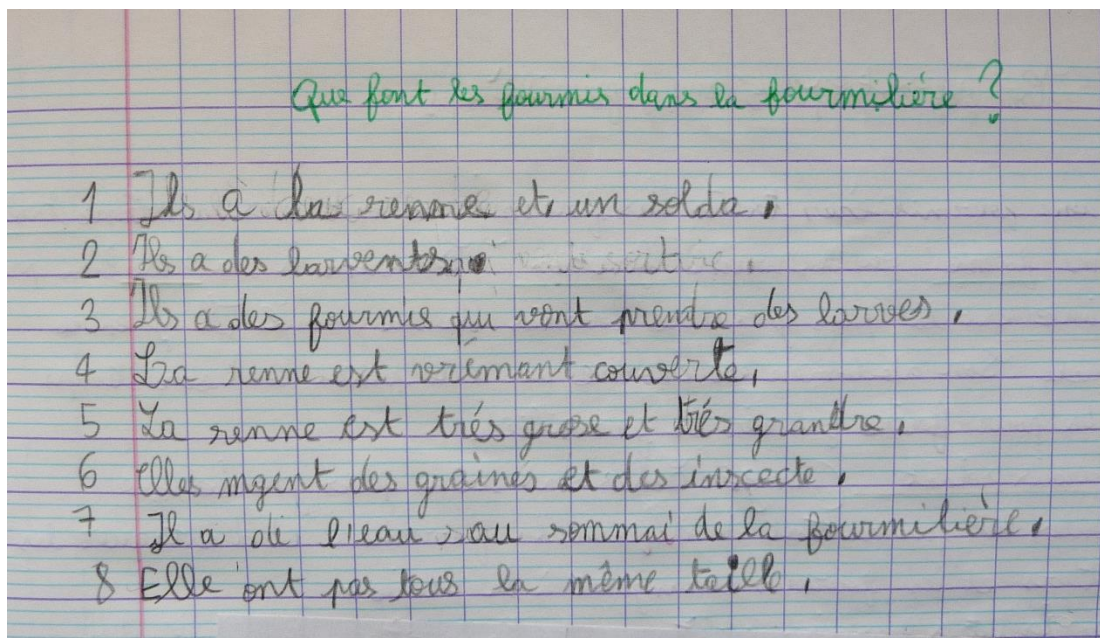 Que font les fourmis dans la fourmilière ?
1 Ils a la renne et un solda.
2 Ils a des
3 Ils a des fourmis qui vont prendre des larves.
4 La renne est vrémant couverte,
5 La renne est trés grose et trés grandre.
6 Elles mgent des graines et des inscecte.
7 Il a de l'eau au sommai de la fourmilière.
8 Elle ont pas tous la même taille.